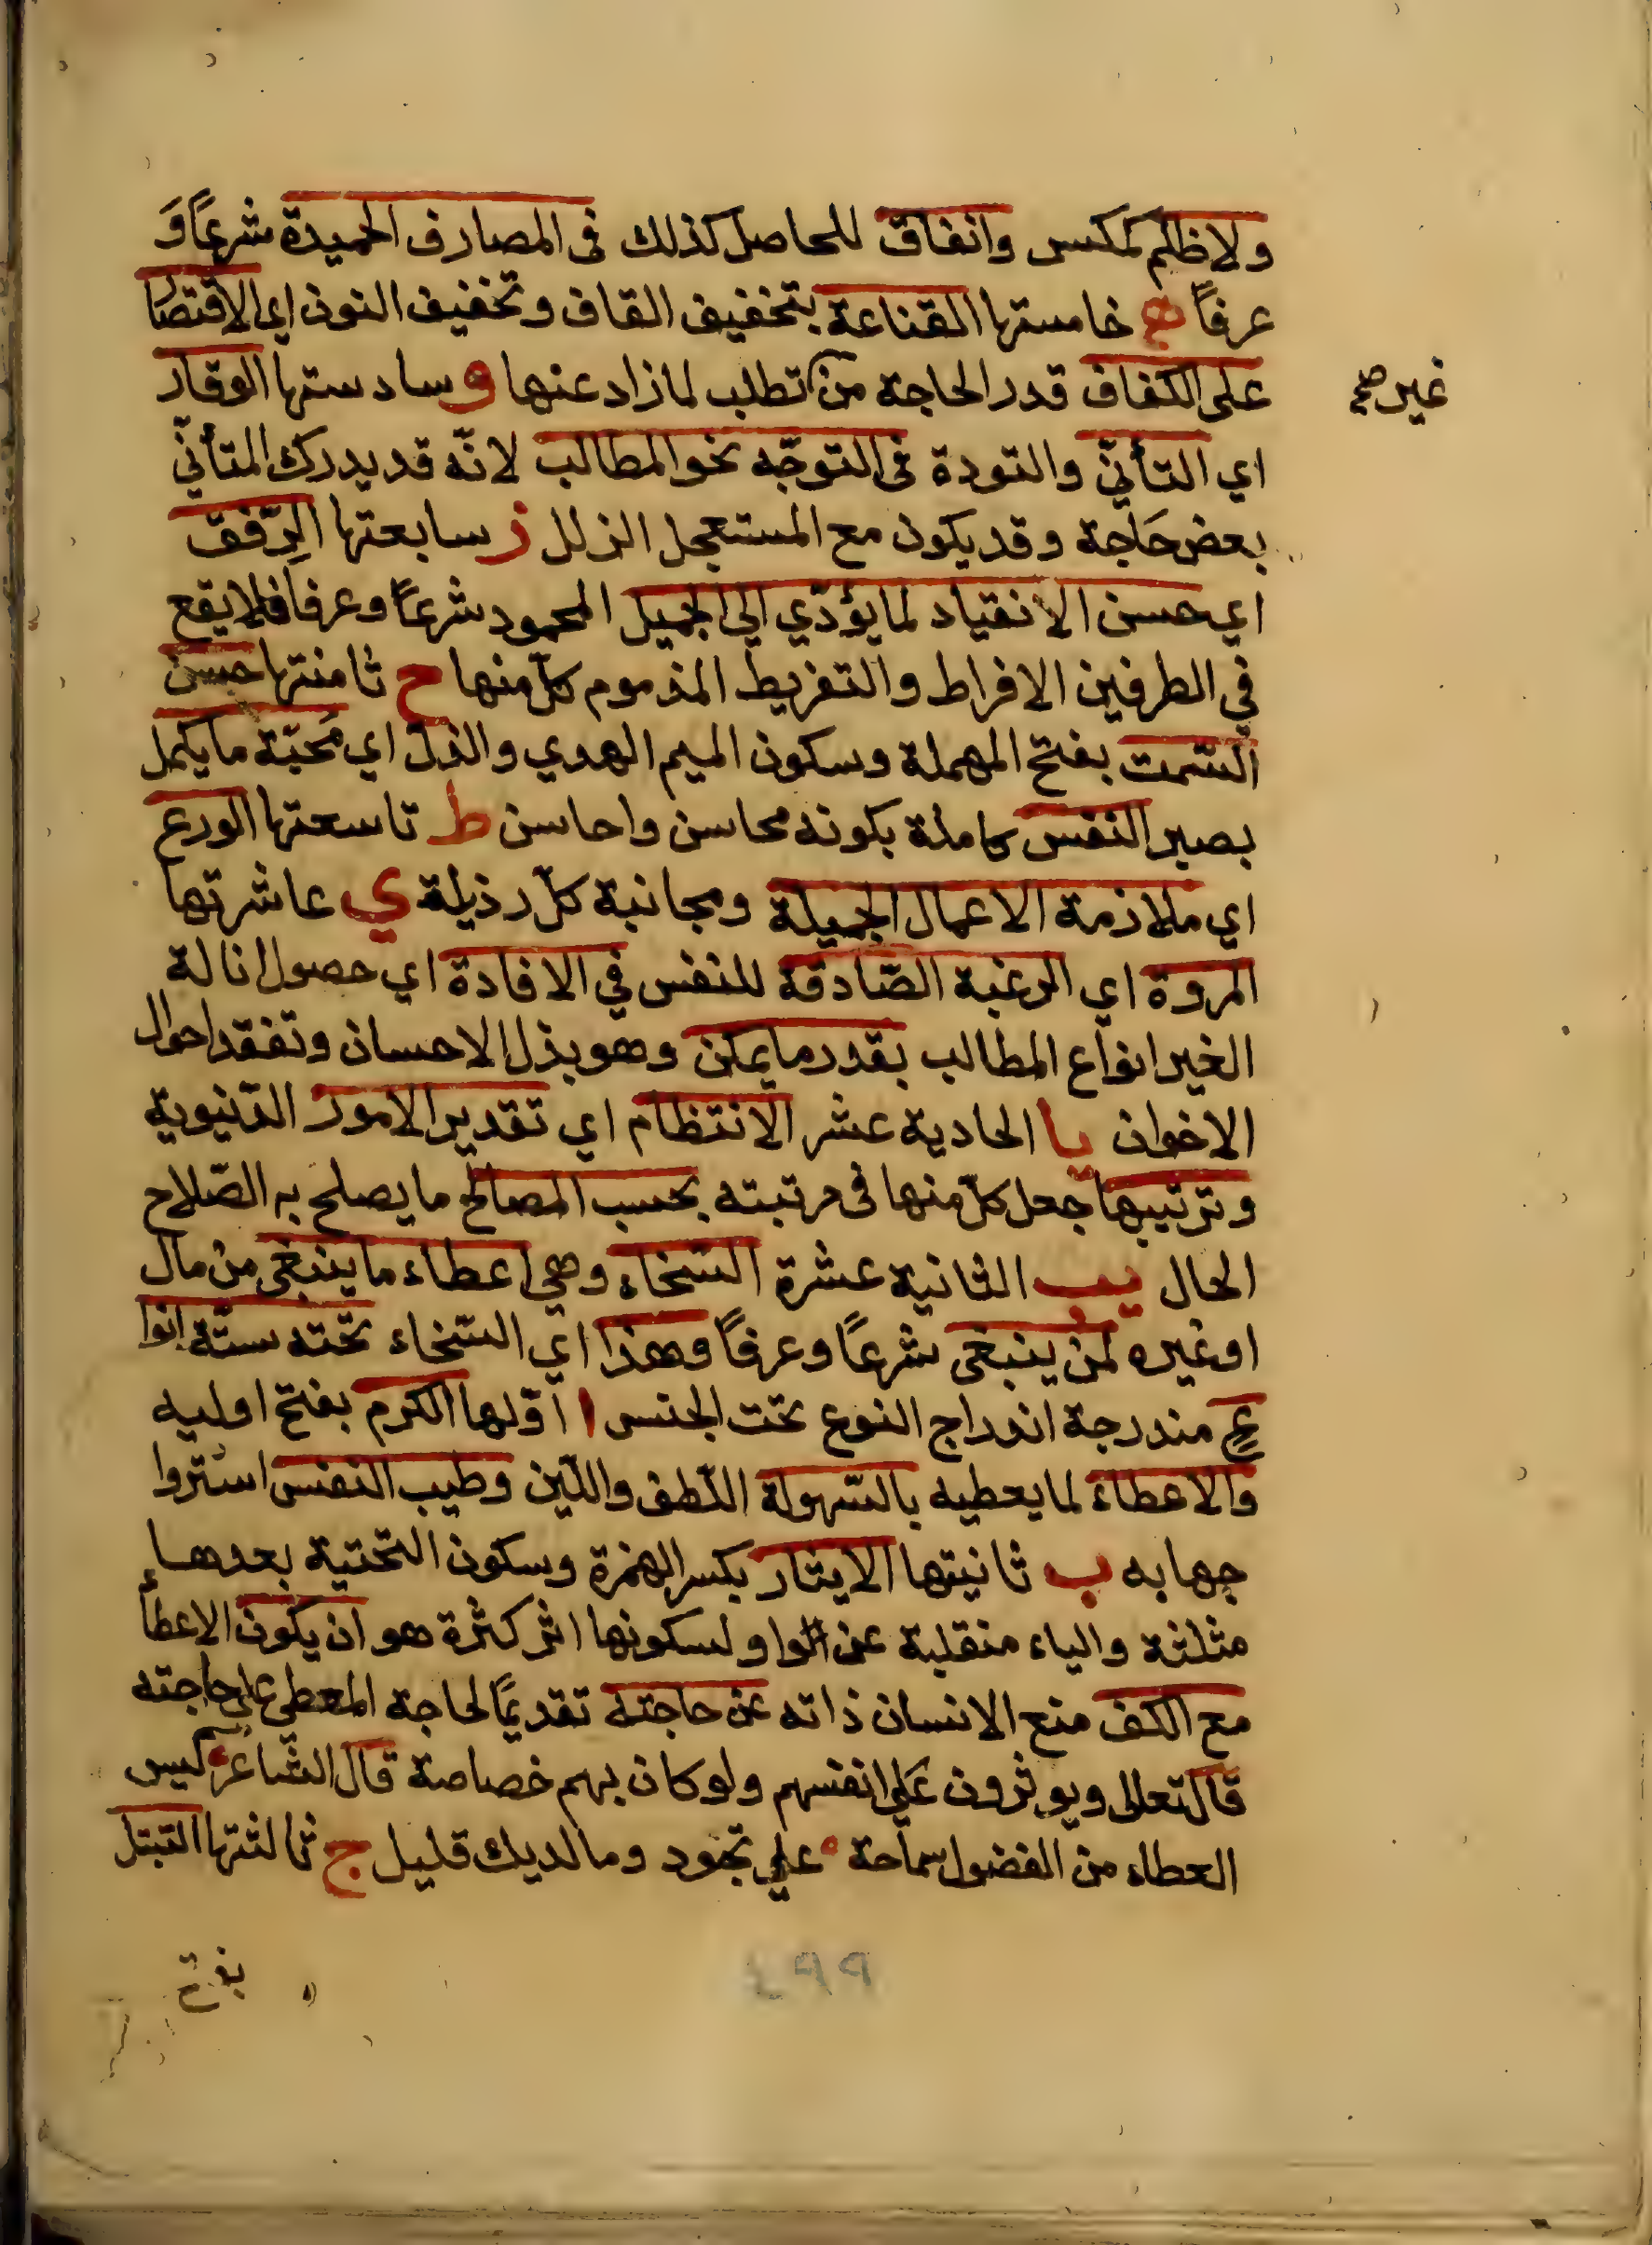 ولا ظلم كمكس وانفاق للحاصل كذلك فى المصارف الحميدة شرعًا وَ
عرفًا ه خامستها القناعة بتخفيف القاف وتخفيف النون اي الاقتصا
على الكفاف قدر الحاجة من تطلب لما زاد عنها و سادستها الوقار
غير صح
اي التأنّي والتودة فى التوجّه نحو المطالب لانّه قد يدرك المتأنّي
بعض حَاجة وقد يكون مع المستعجل الزلل ز سابعتها الرِّفق
اي حسن الانقياد لما يؤدّي الى الجميل المحمود شرعًا وعرفا فلا يقع
في الطرفين الافراط والتفريط المذموم كلّ منها ح ثامنتها حسن
السّمت بفتح المهملة وسكون الميم الهدي والدل اي مَحبّة ما يكمل
بصير النفس كاملة بكونه محاسن واحاسن ط تاسعتها الورع
اي ملازمة الاعمال الجميلة ومجانبة كلّ رذيلة ي عاشرتها
المروة اي الرغبة الصّادقة للنفس في الافادة اي حصول انالة
الخير انواع المطالب بقدر ما يمكن وهو بذل الاحسان وتفقد احوال
الاخوان يا الحادية عشر الانتظام اي تقدير الامور الدّنيوية
وترتيبها جعل كلّ منها فى مرتبته بحسب المصالح ما يصلح به الصّلاح
الحال يب الثانية عشرة السّخاء وهي اعطاء ما ينبغى من مال
او غيره لمن ينبغى شرعًا وعرفًا وهذا اي السّخاء تحته ستّة انوا
عٍ مندرجة اندراج النوع تحت الجنس ا اوّلها الكرم بفتح اوليه
والاعطاء لما يعطيه بالسّهولة اللّطف واللّين وطيب النفس استروا
جها به ب ثانيتها الايثار بكسر الهمزة وسكون التحتية بعدها
مثلثة والياء منقلبة عن الواو لسكونها اثر كثرة هو ان يكون الاعطأ
مع الكف منع الانسان ذاته عن حاجته تقديمًا لحاجة المعطي على حاجته
قال تعالى ويوثرون على انفسهم ولو كان بهم خصاصة قال الشّاعر ليس
العطاء من الفضول سماحة علي تجود وما لديك قليل ج ثالثتها التبتل
بفتح